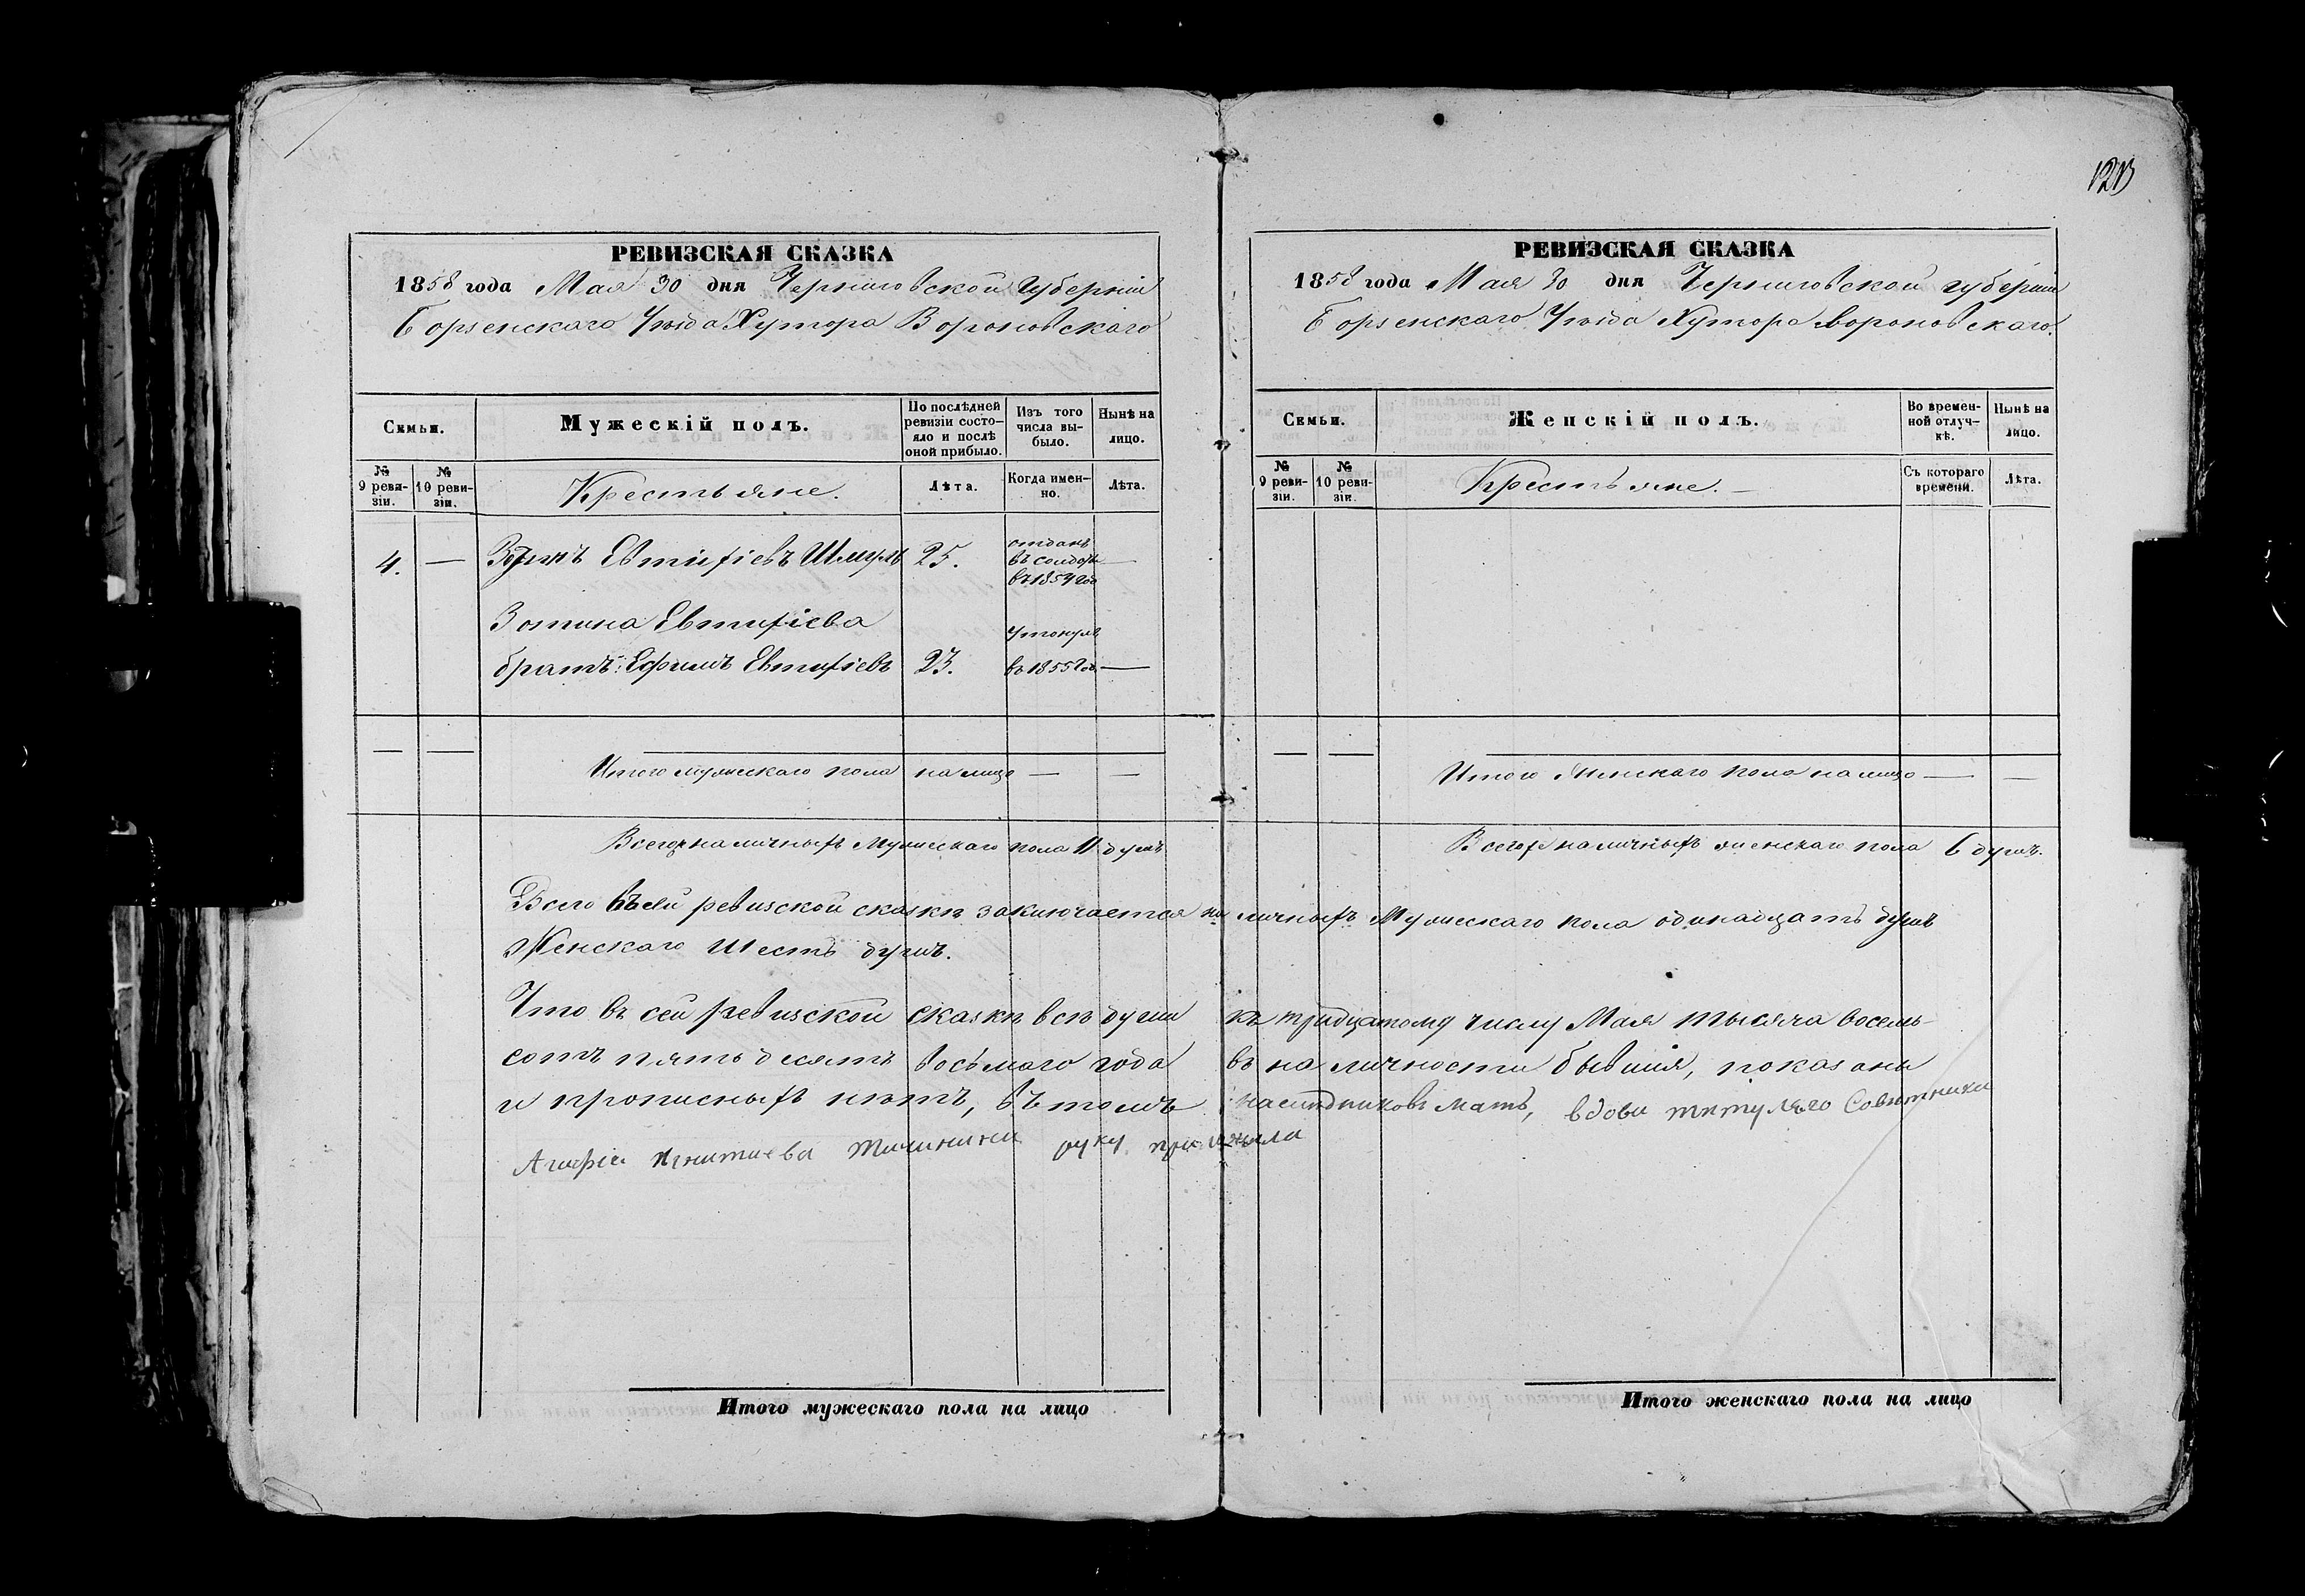 1213
РЕВИЗСКАЯ СКАЗКА
1858 года Мая 30 дня Черниговской Губерніи
Борзенскаго Уѣзда Хутора Вороновскаго
Семьи.
Мужескій полъ.
По послѣдней ревизіи состо-
яло и послѣ
оной прибыло.
Изъ того
числа вы-
было.
Нынѣ на
лицо.
№
9 реви-
зіи.
№
10 реви-
зіи.
Крестьяне.
Лѣта.
Когда имен-
но.
Лѣта.
4. — Евтифіевъ Шмуль 25. отданъ
въ солдаты
въ 1854 год —
Зотина Евтифіева
братъ: Ефимъ Евтифіевъ 23. утонулъ
въ 1855 год —
— —
Итого мужескаго пола на лицо — —
Всего наличныхъ Мужескаго пола 11 душъ
РЕВИЗСКАЯ СКАЗКА
1858 года Мая 30 дня Черниговской губерніи
Борзенскаго Уѣзда Хутора Вороновскаго.
Семьи.
Женскій полъ.
Во времен-
ной отлуч-
кѣ.
Нынѣ на
лицо.
№
9 реви-
зіи.
№
10 реви-
зіи.
Крестьяне. —
Съ котораго
времени.
Лѣта.
— —
Итого женскаго пола на лицо — —
Всего наличныхъ женскаго пола 6 душъ.
Всего въ сей ревизской сказкѣ заключается наличныхъ Мужескаго пола одинадцать душъ
Женскаго шесть душъ.
Что въ сей ревизской сказкѣ всѣ души къ тридцатому числу Мая тысяча восемь-
сотъ пятьдесятъ восьмаго года въ наличности бывшія, показаны
и прописныхъ нѣтъ, въ томъ наслѣдниковъ мать, вдова Совѣтника
руку приложила
Итого мужескаго пола на лицо
Итого женскаго пола на лицо